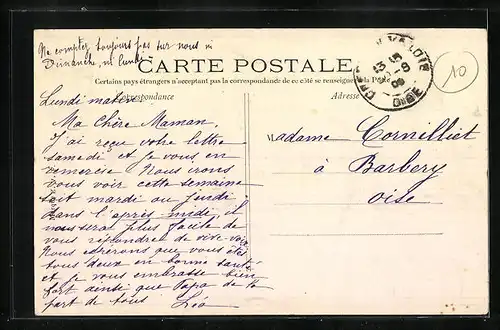 Ne comptez toujours pas sur nous ni
Dimanche, ni lundi
CARTE POSTALE
Certains pays étrangers n'acceptant pas la correspondance de ce côté se renseigner à la Poste
Correspondance
Adresse
10
Lundi matin
Ma Chère Maman,
J'ai reçu votre lettre
samedi et je vous en
remercie Nous irons
vous voir cette semaine
soit mardi ou jeudi
dans l'après-midi, il
nous sera plus facile de
vous répondre de vive-voix
Nous espérons que vous êtes
tous deux en bonne santé
et je vous embrasse bien
fort ainsi que Papa de la
part de tous Léa
Madame Cornilliet
à Barbery
Oise
OISE